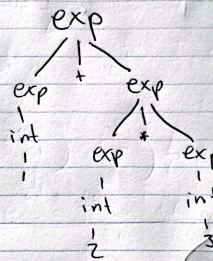 exp
exp + exp
int exp * exp
1 int int
2 3